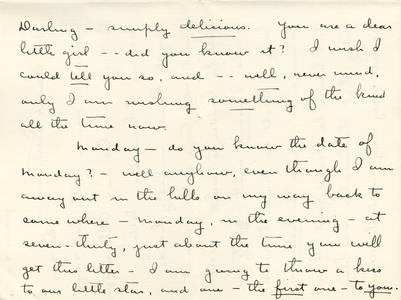 Darling — simply delicious. You are a dear
little girl -- did you know it? I wish I
could tell you so, and -- well, never mind,
only I am wishing something of the kind
all the time now.
Monday — do you know the date of
Monday? — well anyhow, even though I am
away out in the hills on my way back to
some where — Monday, in the evening — at
seven-thirty, just about the time you will
get this letter — I am going to throw a kiss
to our little star, and one — the first one — to you.